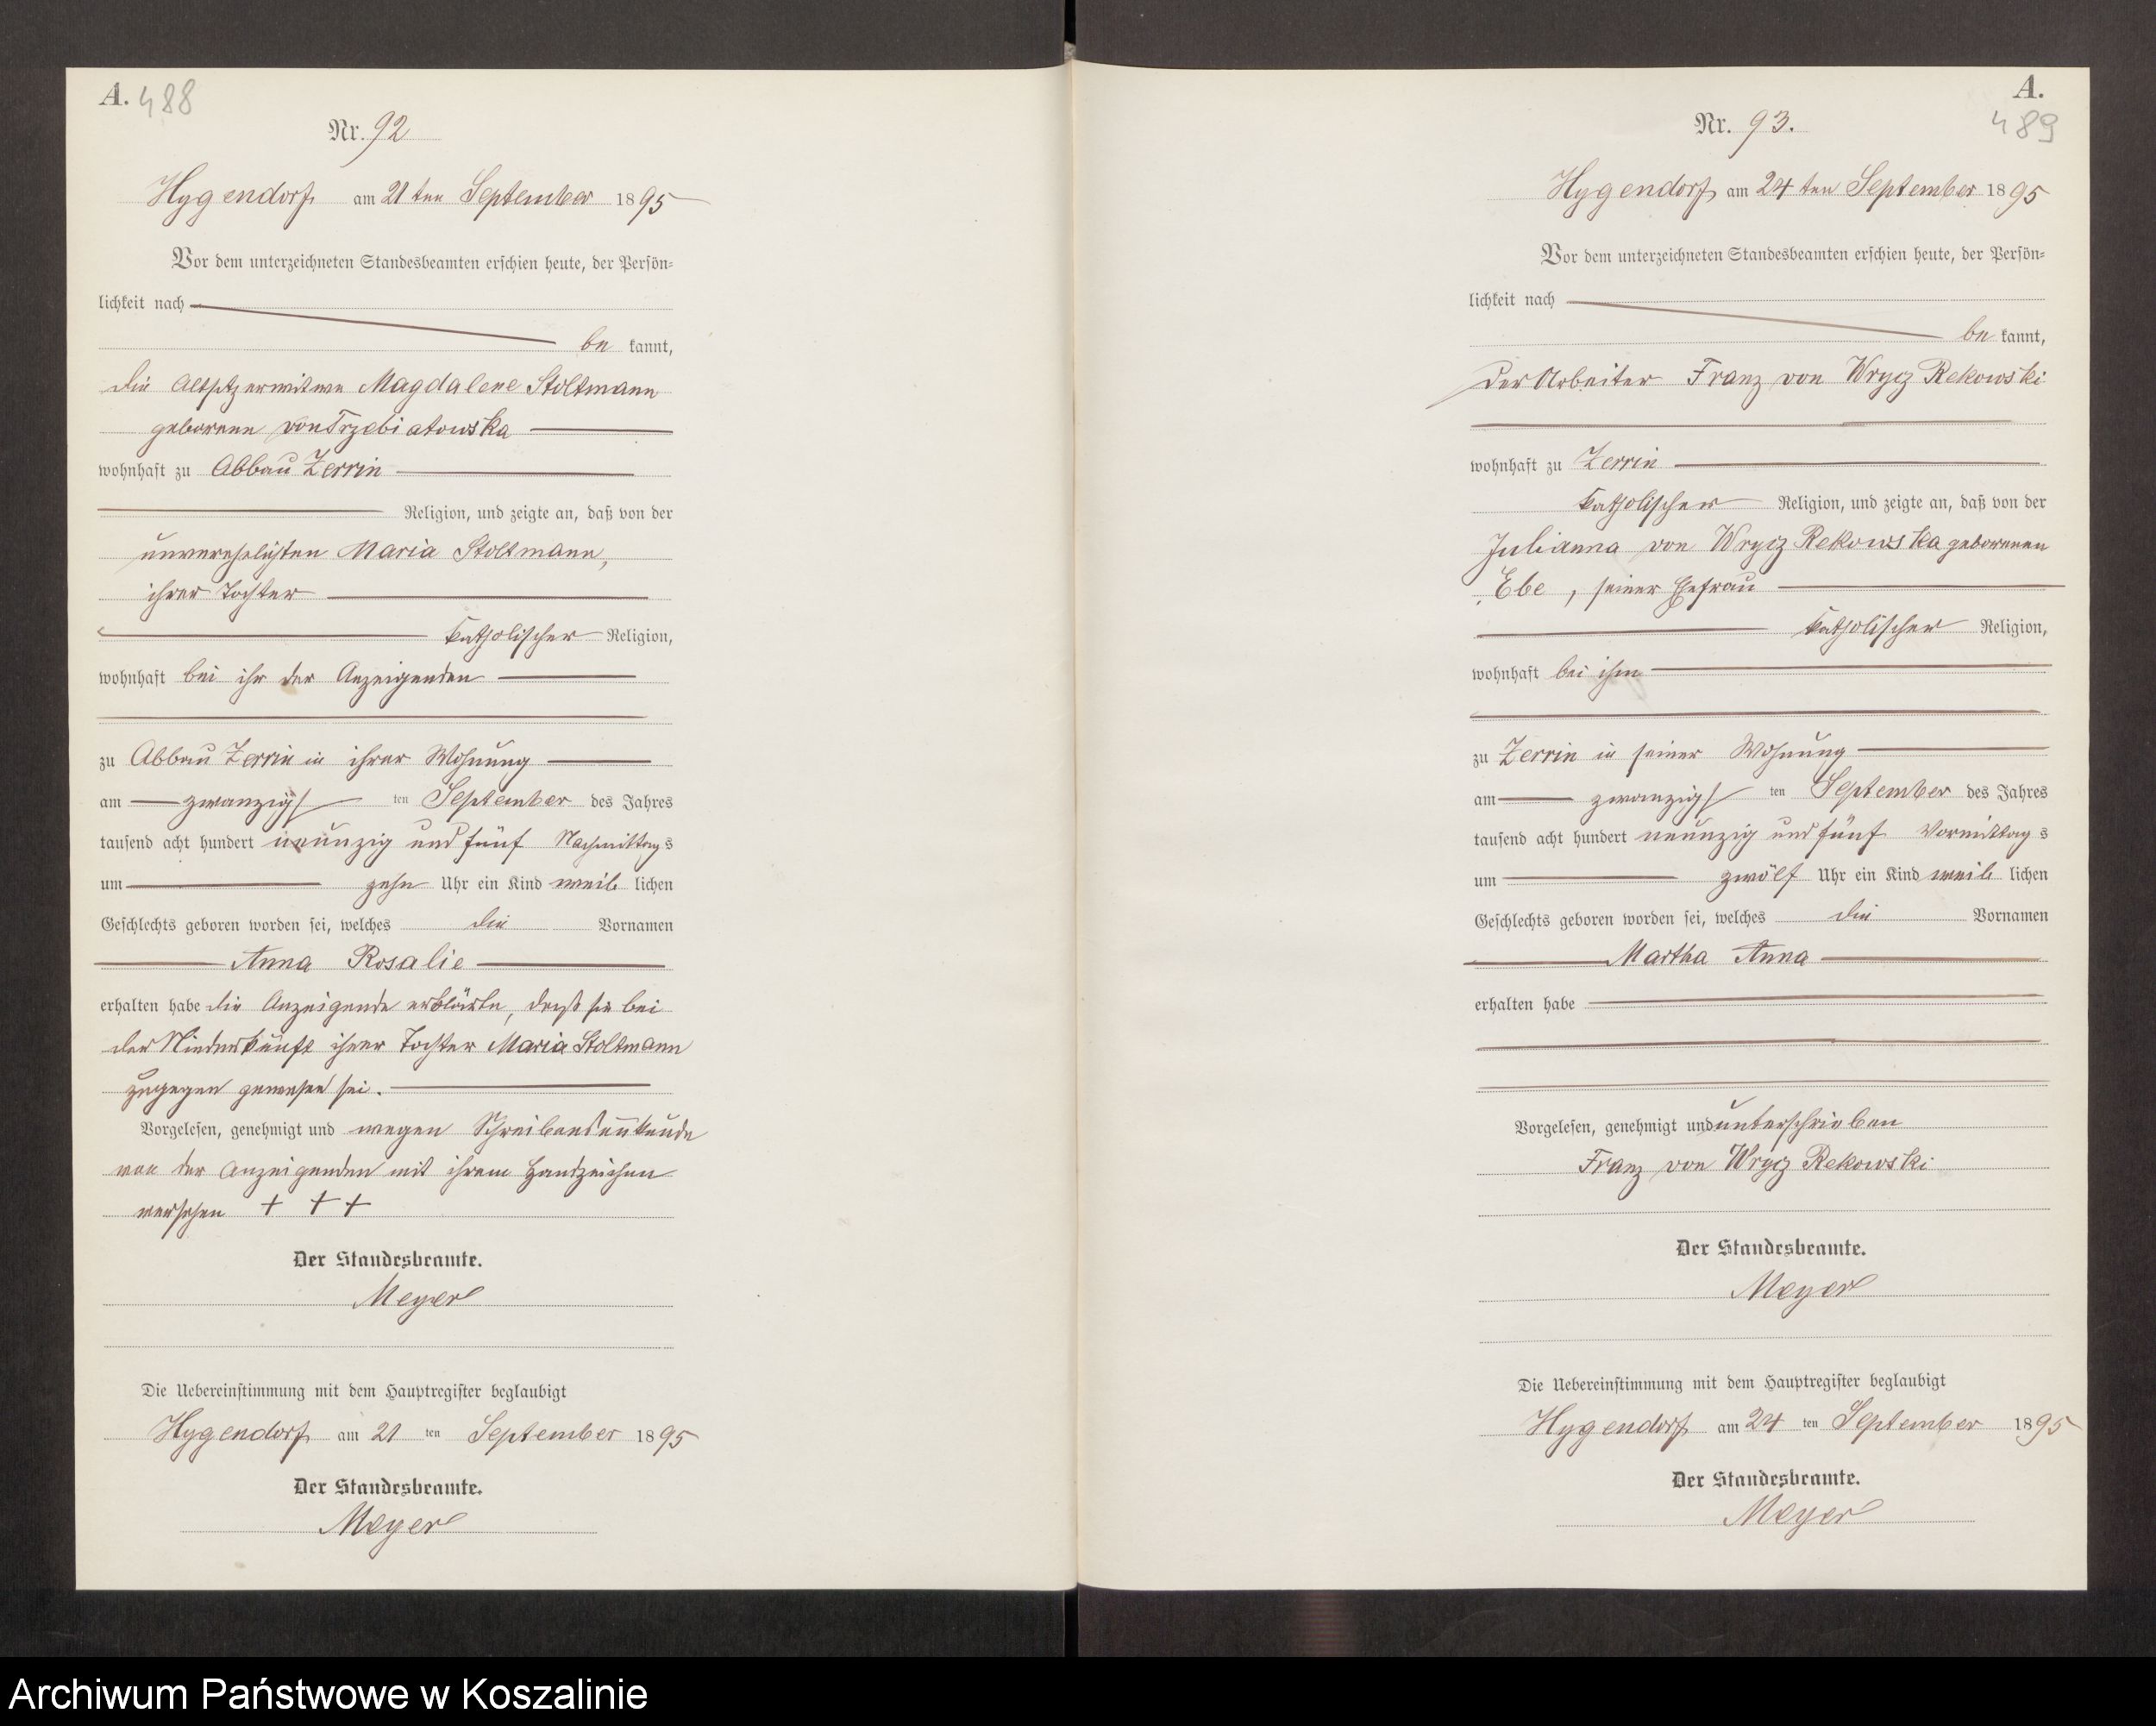 A. 488
Nr. 92
Hygendorf am 21 ten September 1895
Vor dem unterzeichneten Standesbeamten erschien heute, der Persön-
lichkeit nach
be kannt,
die Altsitzerwitwe Magdalene Stoltmann
geborene von Trzebiatowska
wohnhaft zu Abbau Zerrin
Religion, und zeigte an, daß von der
unverehelichten Maria Stoltmann,
ihrer Tochter
katholischer Religion,
wohnhaft bei ihr der Anzeigenden
zu Abbau Zerrin in ihrer Wohnung
am zwanzigs ten September des Jahres
tausend acht hundert neunzig und fünf Nachmittags
um zehn Uhr ein Kind weib lichen
Geschlechts geboren worden sei, welches die Vornamen
Anna Rosalie
erhalten habe die Anzeigende erklärte, daß sie bei
der Niederkunft ihrer Tochter Maria Stoltmann
zugegen gewesen sei.
Vorgelesen, genehmigt und wegen Schreibensunkunde
von der Anzeigenden mit ihrem Handzeichen
versehen + + +
Der Standesbeamte.
Meyer
Die Uebereinstimmung mit dem Hauptregister beglaubigt
Hygendorf am 21 ten September 1895
Der Standesbeamte.
Meyer
A.
489
Nr. 93.
Hygendorf am 24 ten September 1895
Vor dem unterzeichneten Standesbeamten erschien heute, der Persön-
lichkeit nach
be kannt,
der Arbeiter Franz von Wrycz Rekowski
wohnhaft zu Zerrin
katholischer Religion, und zeigte an, daß von der
Julianna von Wrycz Rekowska geborenen
Ebe, seiner Ehefrau
katholischer Religion,
wohnhaft bei ihm
zu Zerrin in seiner Wohnung
am zwanzigs ten September des Jahres
tausend acht hundert neunzig und fünf Vormittags
um zwölf Uhr ein Kind weib lichen
Geschlechts geboren worden sei, welches die Vornamen
Martha Anna
erhalten habe
Vorgelesen, genehmigt und unterschrieben
Franz von Wrycz Rekowski
Der Standesbeamte.
Meyer
Die Uebereinstimmung mit dem Hauptregister beglaubigt
Hygendorf am 24 ten September 1895
Der Standesbeamte.
Meyer
Archiwum Państwowe w Koszalinie